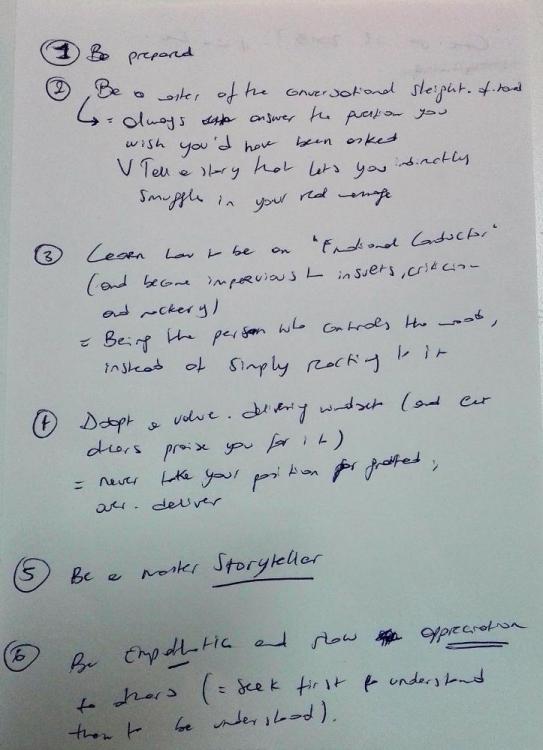 ① Be prepared
② Be a master of the conversational sleight-of-hand
= always answer the question you
wish you'd have been asked
V Tell a story that lets you indirectly
smuggle in your real message
③ Learn how to be an "Emotional Conductor"
(and become impervious to insults, criticism
and mockery)
= Being the person who controls the mood,
instead of simply reacting to it
④ Adopt a value-delivering mindset (and let
others praise you for it)
= never take your position for granted;
over-deliver
⑤ Be a master Storyteller
⑥ Be Empathetic and show appreciation
to others (= seek first to understand
then to be understood).